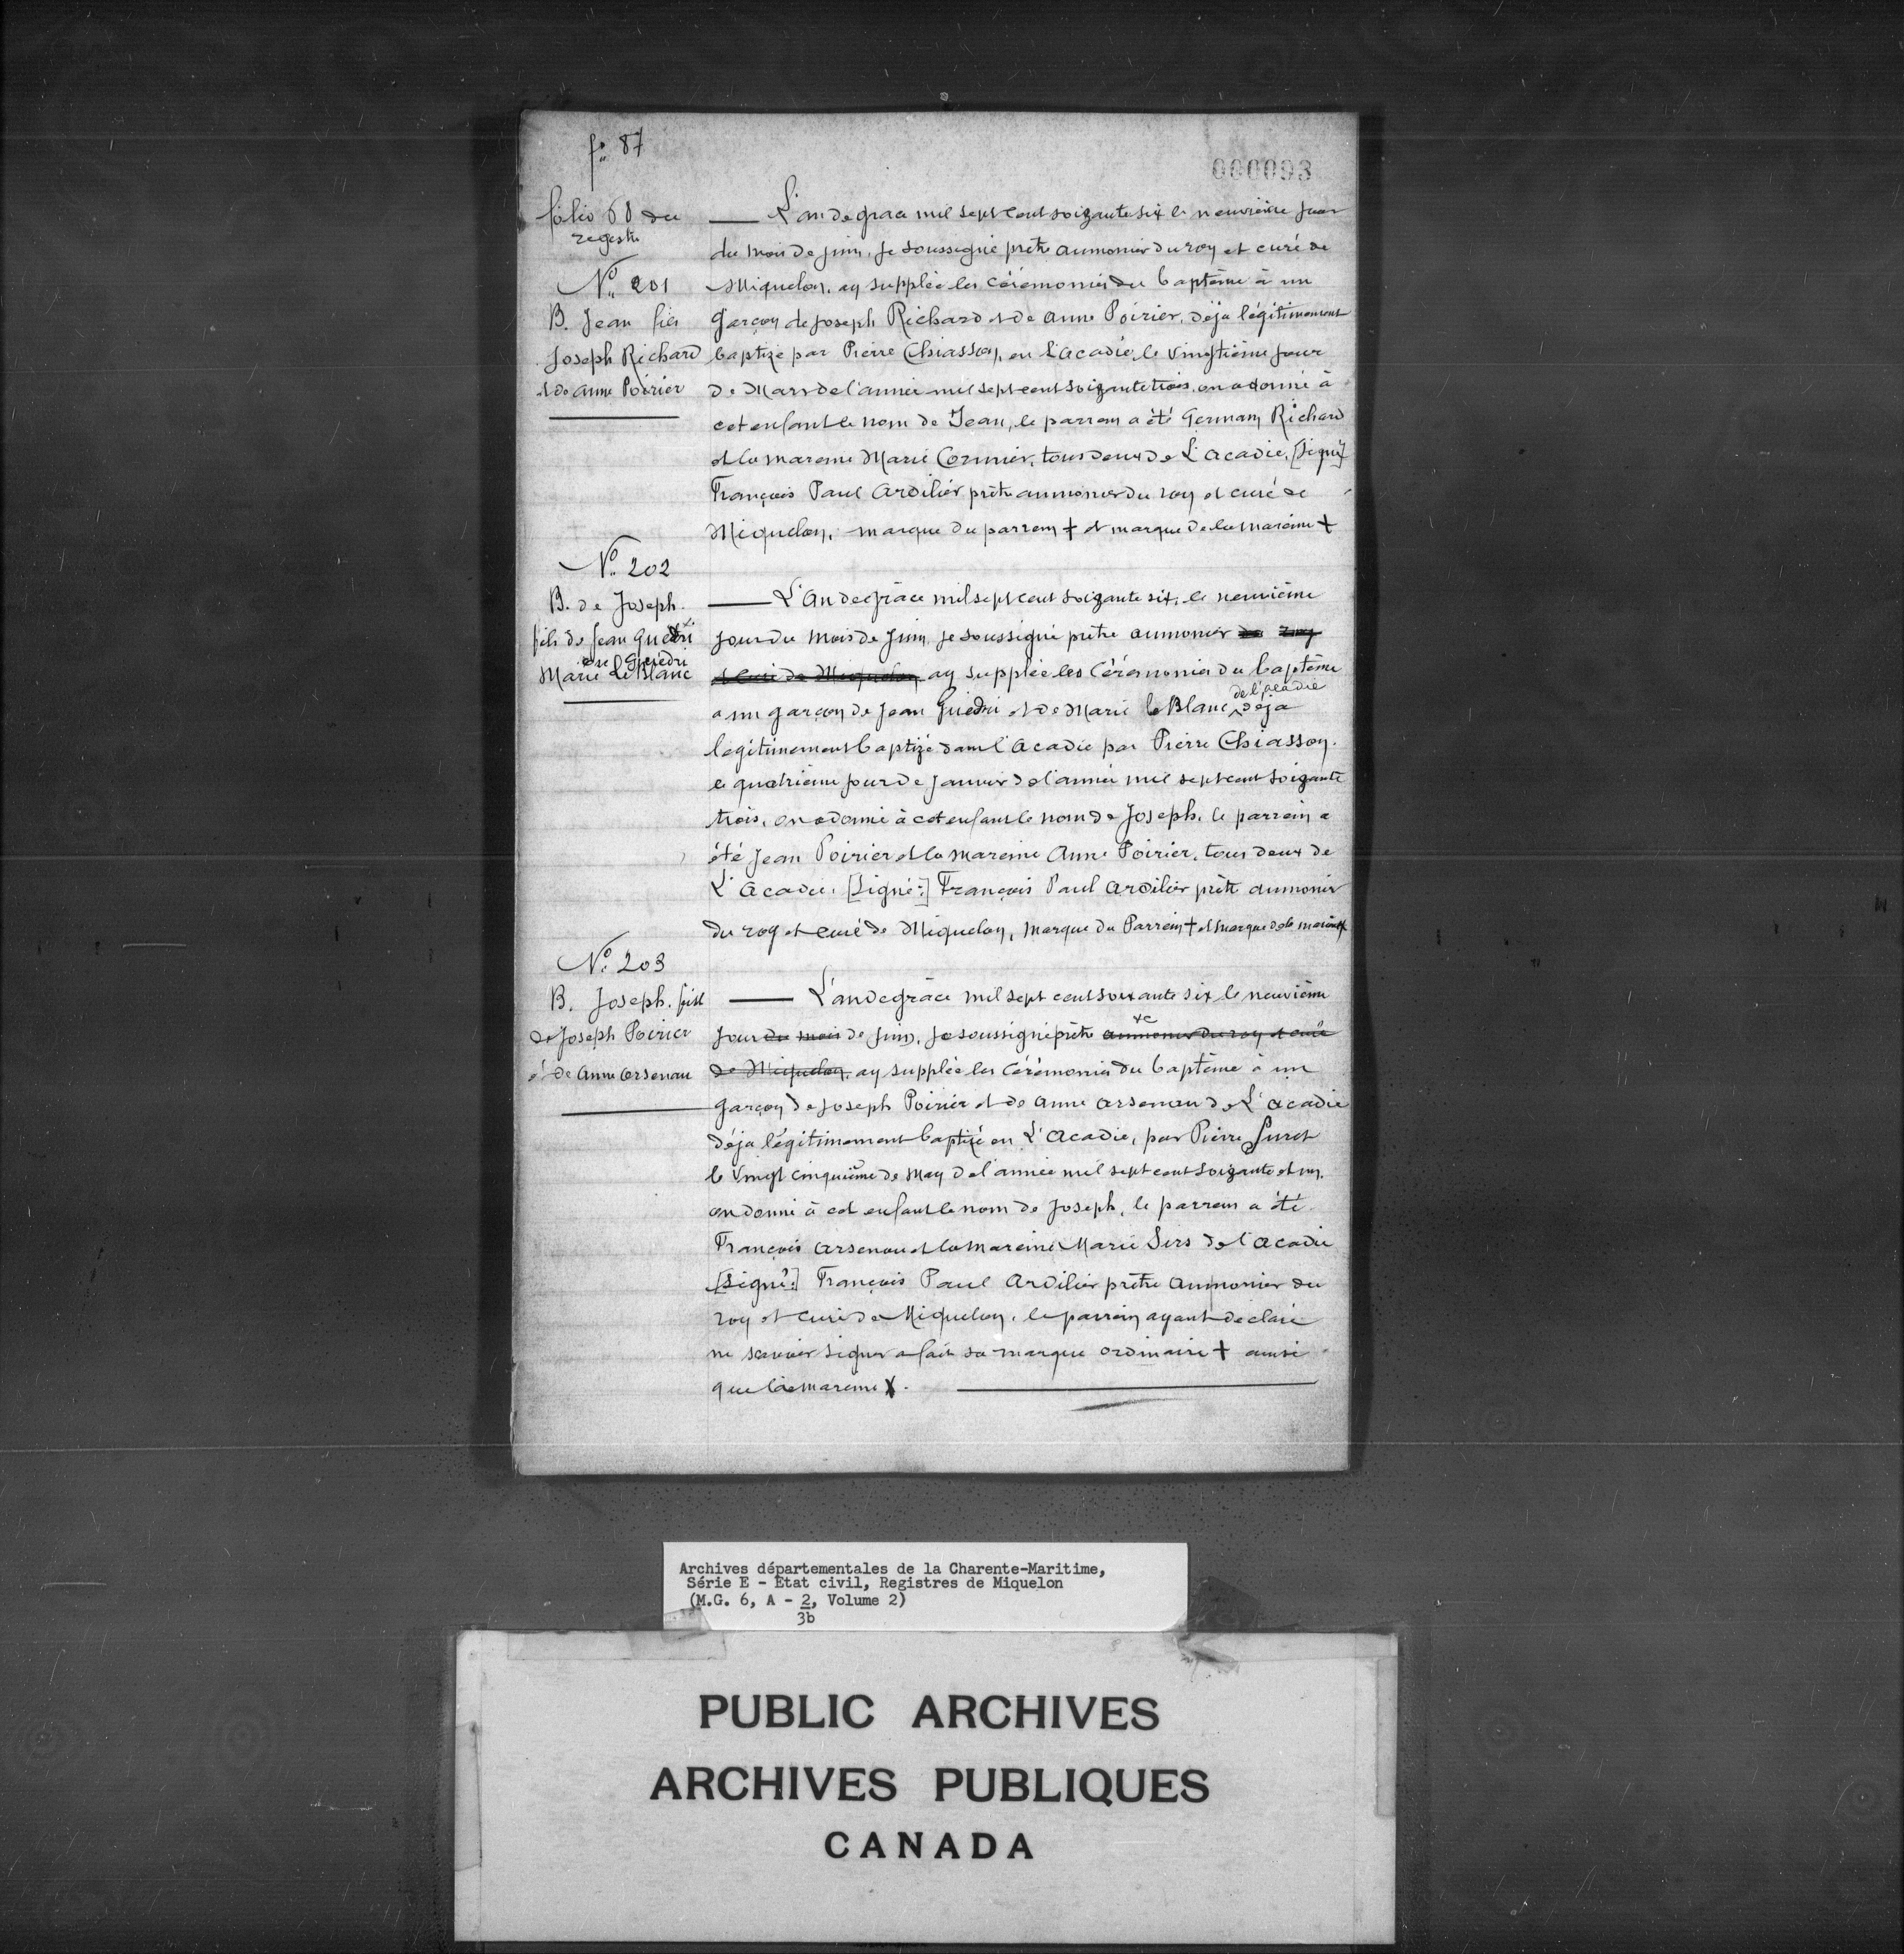 fo. 87
000093
folio 68 du
registre
No. 201
B. Jean fils
Joseph Richard
et de Anne Poirier
L'an de grace mil sept cent soizante six le neuvième jour
du mois de juin, je soussigné prêtre aumonier du roy et curé de
Miquelon, ay supplée les cérémonies du baptême à un
garçon de Joseph Richard et de Anne Poirier, déja légitimement
baptizé par Pierre Chiasson, en L'acadie, le vingtième jour
de Mars de l'année mil sept cent soizante trois, on a donné à
cet enfant le nom de Jean, le parrein a été Germain Richard
et la mareine Marie Cormier, tous deux de L'acadie, [Signé]
François Paul Ardilier prêtre aumonier du roy et curé de
Miquelon, marque du parrein + et marque de la mareine +
No. 202
B. de Joseph
fils de Jean Guédri
Guédri
Marie Le Blanc
L'An de grâce mil sept cent soizante six, le neuvième
jour du mois de Juin, je soussigné prêtre aumonier du roy
et curé de Miquelon ay supplée les Cérémonies du baptême
a un garçon de Jean Guédri et de Marie le Blanc, de l'acadie déja
legitimement baptizé dans l'Acadie par Pierre Chiasson
le quatrième jour de janvier de l'année mil sept cent soizante
trois, on a donné à cet enfant le nom de Joseph, le parrein a
été Jean Poirier et la mareine Anne Poirier, tous deux de
L'Acadie. [Signé:] François Paul Ardilier prêtre aumonier
du roy et curé de Miquelon, Marque du Parrein + et marque de la mareine +
No. 203
B. Joseph, fils
de Joseph Poirier
et de Anne Arsenau
L'an de grâce mil sept cent soixante six le neuvième
jour du mois de Juin, Je soussigné prêtre aumonier du roy et curé
de Miquelon, ay supplée les Cérémonies du baptême à un
garçon de Joseph Poirier et de Anne Arsenau de L'acadie
déja légitimement baptizé en L'Acadie, par Pierre Suret
le vingt cinquième de May de l'année mil sept cent soizante et un,
on donné à cet enfant le nom de Joseph, le parrein a été
François Arsenau et la mareine Marie Sirs de l'acadie
[Signé:] François Paul Ardilier prêtre aumonier du
roy et curé de Miquelon, le parrein ayant déclaré
ne scavoir signer a fait sa marque ordinaire + ainsi
que la mareine X.
Archives départementales de la Charente-Maritime,
Série E - Etat civil, Registres de Miquelon
(M.G. 6, A - 2, Volume 2)
3b
PUBLIC ARCHIVES
ARCHIVES PUBLIQUES
CANADA